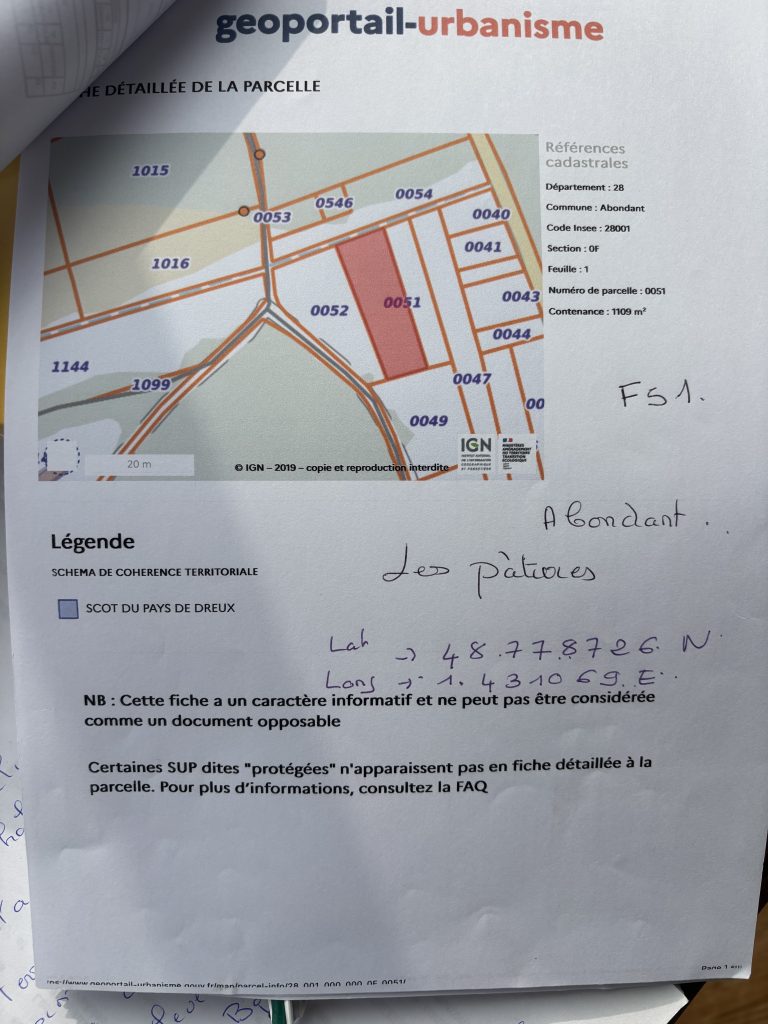 geoportail-urbanisme
HE DÉTAILLÉE DE LA PARCELLE
1015
0053
0546
0054
1016
0040
0041
0052
0051
0043
0044
1144
1099
0047
0049
00
20 m
© IGN – 2019 – copie et reproduction interdite
IGN
Références
cadastrales
Département : 28
Commune : Abondant
Code Insee : 28001
Section : 0F
Feuille : 1
Numéro de parcelle : 0051
Contenance : 1109 m²
F51.
Abondant.
Légende
SCHEMA DE COHERENCE TERRITORIALE
SCOT DU PAYS DE DREUX
Les
Lat → 48.778726 N
Long → 1.431069 E
NB : Cette fiche a un caractère informatif et ne peut pas être considérée
comme un document opposable
Certaines SUP dites "protégées" n'apparaissent pas en fiche détaillée à la
parcelle. Pour plus d'informations, consultez la FAQ